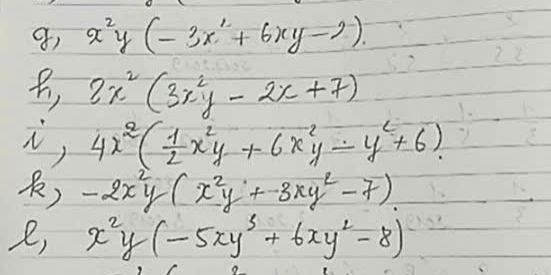 g, x²y (-3x² + 6xy - 2).
h, 2x² (3x²y - 2x + 7)
i, 4x² (1/2 x²y + 6x²y - y² + 6).
k, -2x²y (x²y + 3xy² - 7).
l, x²y (-5xy³ + 6xy² - 8)